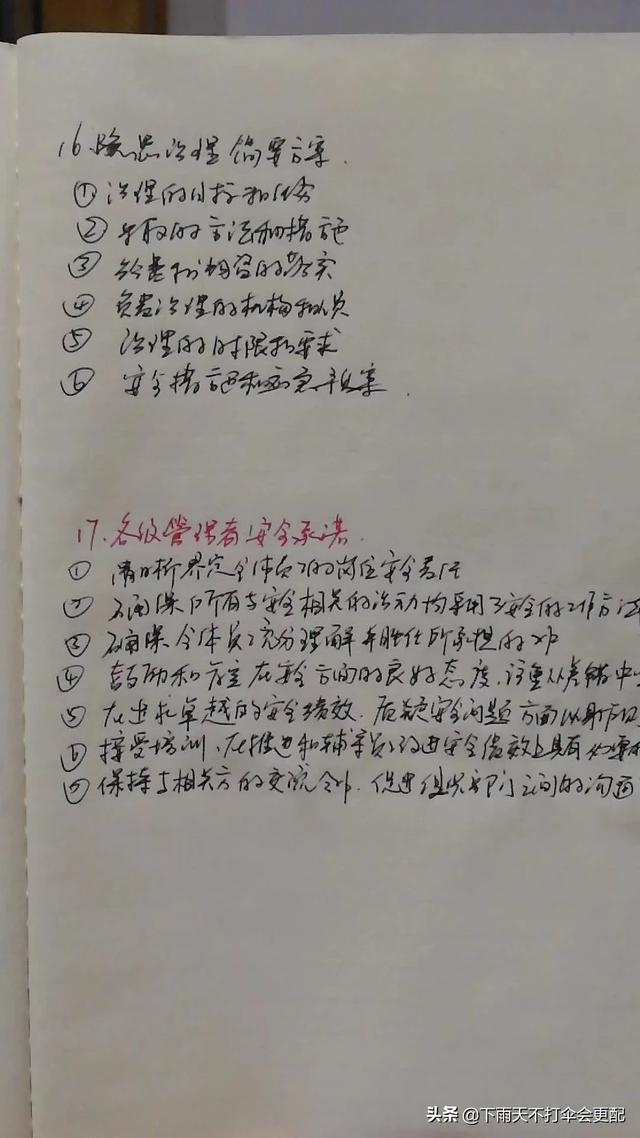 16.隐患治理简要方案.
①治理的目标和任务
②采取的方法和措施
③经费和物资的落实
④负责治理的机构和人员
⑤治理的时限和要求
⑥安全措施和应急预案.
17.各级管理者安全承诺.
①清晰界定全体员工的岗位安全责任
②确保所有与安全相关的活动均采用了安全的工作方法
③确保全体员工充分理解并胜任所承担的工作
④鼓励和肯定在安全方面的良好态度,注重从差错中
⑤在追求卓越的安全绩效.质疑安全问题方面以身作则
⑥接受培训、在推进和辅导员工改进安全绩效上具有必要
⑦保持与相关方的交流合作.促进组织部门之间的沟通
头条 @下雨天不打伞会更配